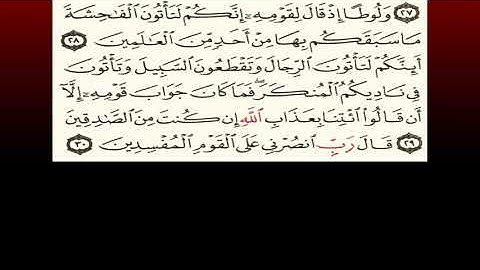 ٢٧ وَلُوطًا إِذۡ قَالَ لِقَوۡمِهِۦٓ إِنَّكُمۡ لَتَأۡتُونَ ٱلۡفَٰحِشَةَ
مَا سَبَقَكُم بِهَا مِنۡ أَحَدٖ مِّنَ ٱلۡعَٰلَمِينَ ٢٨
أَئِنَّكُمۡ لَتَأۡتُونَ ٱلرِّجَالَ وَتَقۡطَعُونَ ٱلسَّبِيلَ وَتَأۡتُونَ
فِي نَادِيكُمُ ٱلۡمُنكَرَۖ فَمَا كَانَ جَوَابَ قَوۡمِهِۦٓ إِلَّآ
أَن قَالُواْ ٱئۡتِنَا بِعَذَابِ ٱللَّهِ إِن كُنتَ مِنَ ٱلصَّٰدِقِينَ
٢٩ قَالَ رَبِّ ٱنصُرۡنِي عَلَى ٱلۡقَوۡمِ ٱلۡمُفۡسِدِينَ ٣٠